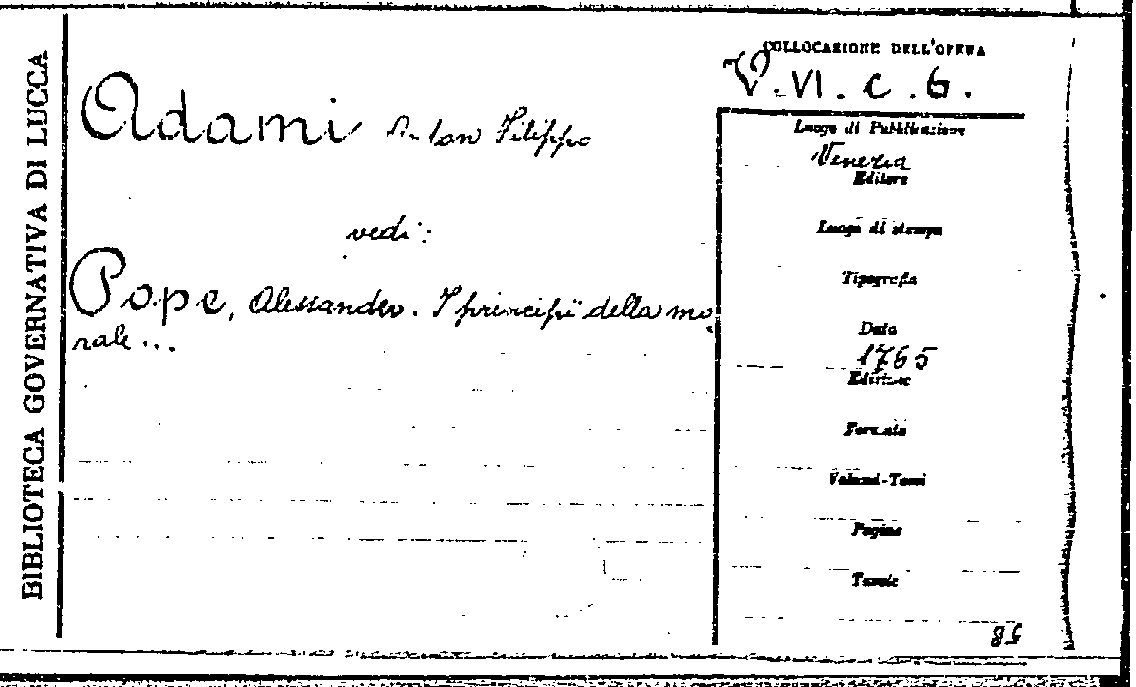 BIBLIOTECA GOVERNATIVA DI LUCCA
COLLOCAZIONE DELL'OPERA
V. VI. c. 6.
Adami Anton Filippo
vedi:
Pope, Alessandro. I principii della mo
rale...
Luogo di Pubblicazione
Venezia
Editore
Luogo di stampa
Tipografia
Data
1765
Edizione
Formato
Volumi-Tomi
Pagine
Tavole
58